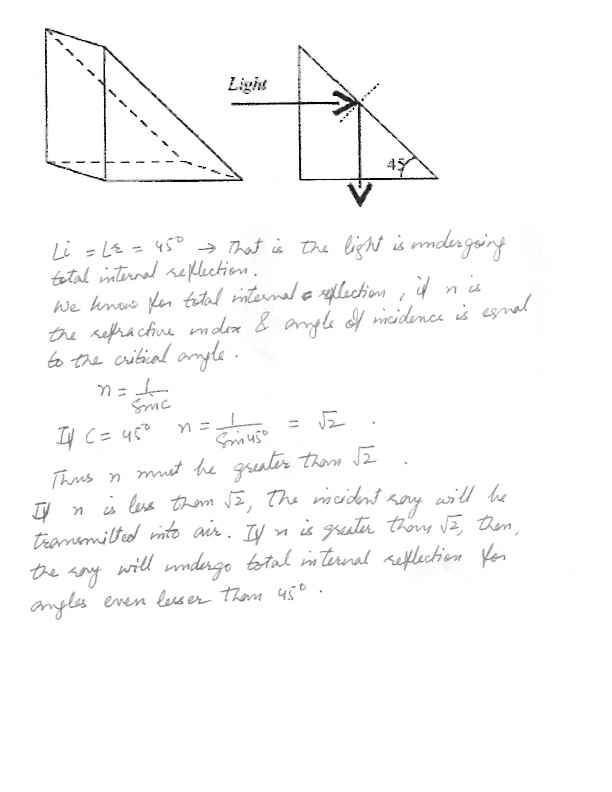 Light
45
Li = Lr = 45° → That is the light is undergoing
total internal reflection.
We know for total internal reflection, if n is
the refractive index & angle of incidence is equal
to the critical angle.
n = 1/Sinc
If C = 45° n = 1/Sin45° = √2 .
Thus n must be greater than √2 .
If n is less than √2, the incident ray will be
transmitted into air. If n is greater than √2, then,
the ray will undergo total internal reflection for
angles even lesser than 45° .